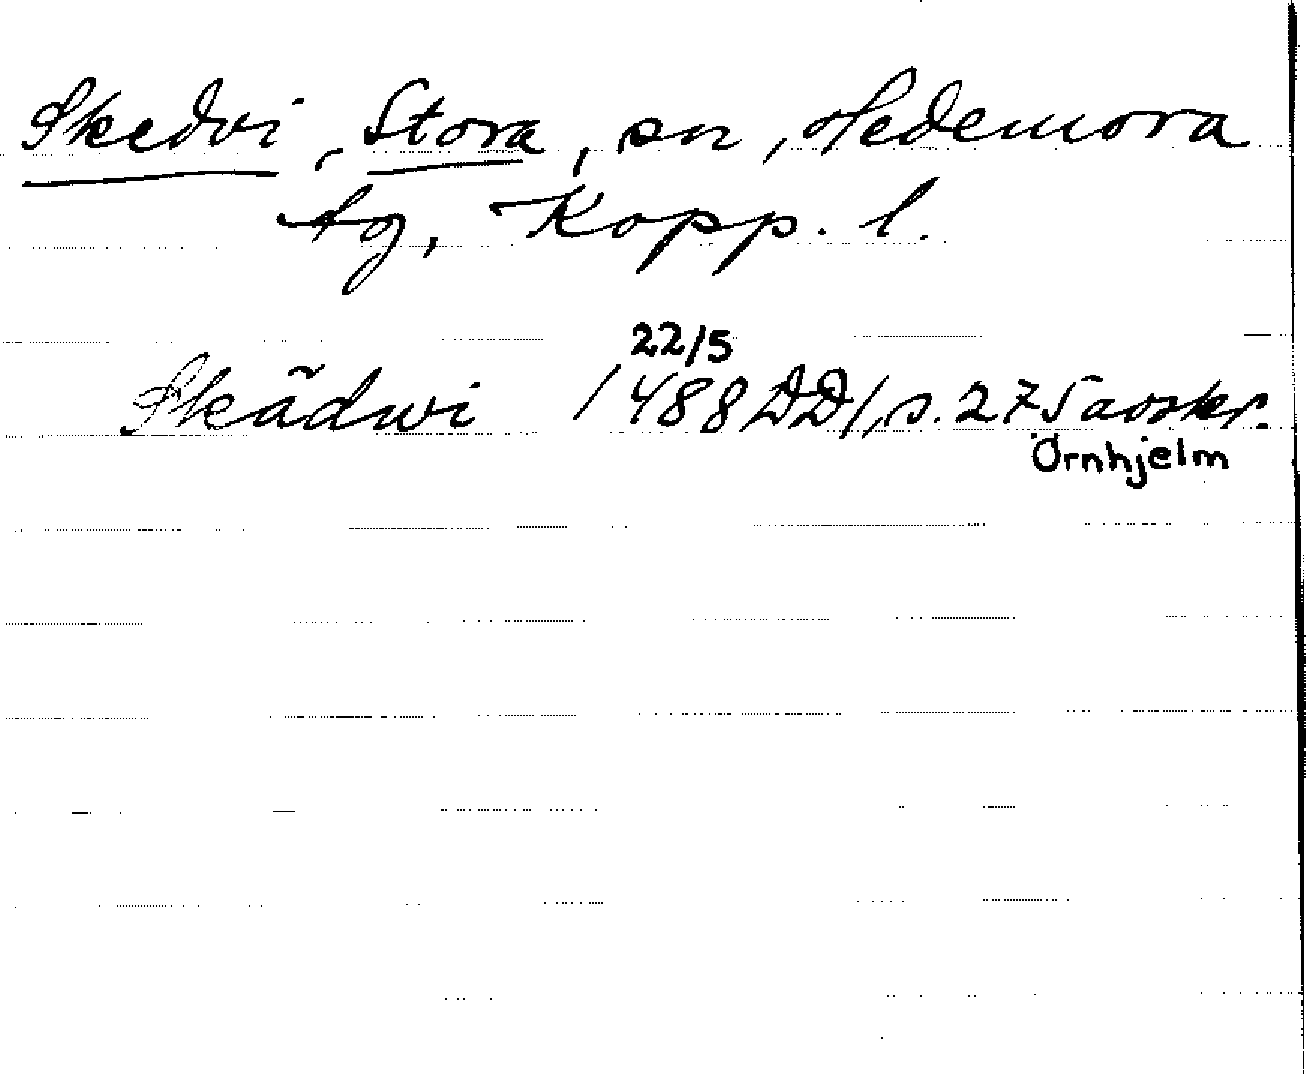 Skedvi, Stora, sn, Hedemora
tg, Kopp. l.
22/5
Skãdwi 1488 DD 1, s. 275 avskr.
Örnhjelm